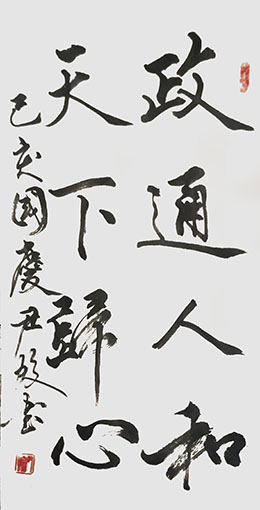 政通人和
天下歸心
己亥國慶尹政書